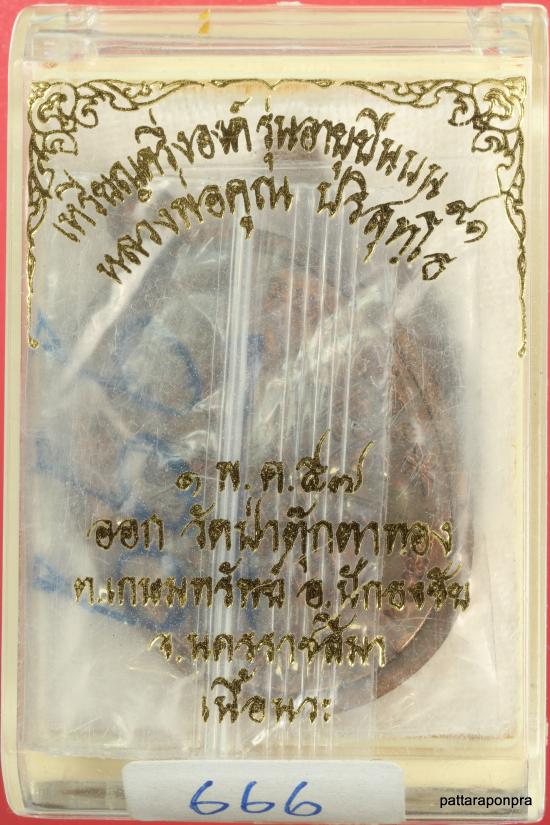 เหรียญครึ่งองค์ รุ่นอายุยืนบน
หลวงพ่อคูณ ปริสุทฺโธ
๑ พ.ค.๕๗
ออก วัดป่าตุ๊กตาทอง
ต.เกษมทรัพย์ อ.ปักธงชัย
จ.นครราชสีมา
เนื้อนวะ
666
pattaraponpra